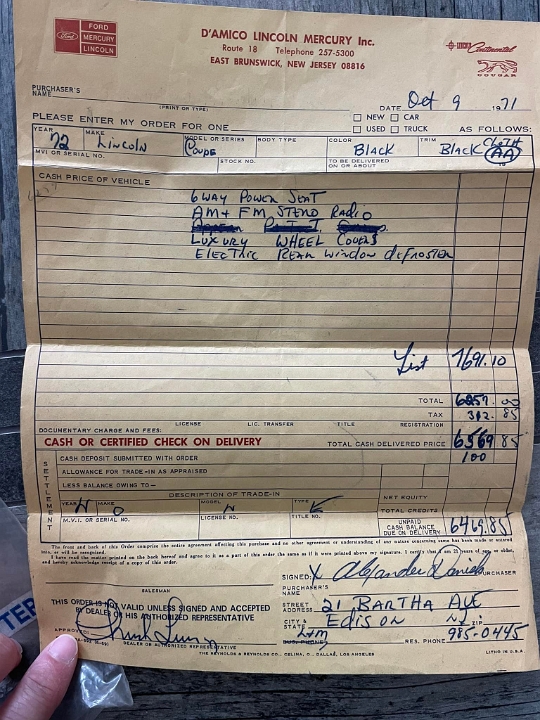 Ford
FORD
MERCURY
LINCOLN
D'AMICO LINCOLN MERCURY Inc.
Route 18 Telephone 257-5300
EAST BRUNSWICK, NEW JERSEY 08816
LINCOLN Continental
COUGAR
PURCHASER'S
NAME
(PRINT OR TYPE)
DATE Oct 9 1971
PLEASE ENTER MY ORDER FOR ONE
NEW CAR
USED TRUCK
AS FOLLOWS:
YEAR MAKE MODEL OR SERIES BODY TYPE COLOR TRIM
72 Lincoln Coupe BLACK BLACK CLOTH (AA)
MVI OR SERIAL NO. STOCK NO. TO BE DELIVERED ON OR ABOUT
CASH PRICE OF VEHICLE
6 WAY POWER SEAT
AM + FM STEREO RADIO
LUXURY WHEEL COVERS
ELECTRIC REAR WINDOW dEFROSTER
List 7691.10
TOTAL 6257.00
TAX 312.85
DOCUMENTARY CHARGE AND FEES: LICENSE LIC. TRANSFER TITLE REGISTRATION
CASH OR CERTIFIED CHECK ON DELIVERY TOTAL CASH DELIVERED PRICE 6569 85
SETTLEMENT
CASH DEPOSIT SUBMITTED WITH ORDER 100
ALLOWANCE FOR TRADE-IN AS APPRAISED
LESS BALANCE OWING TO—
DESCRIPTION OF TRADE-IN NET EQUITY
YEAR MAKE MODEL TYPE TOTAL CREDITS
M.V.I. OR SERIAL NO. LICENSE NO. TITLE NO.
UNPAID CASH BALANCE DUE ON DELIVERY 6469.85
The front and back of this Order comprise the entire agreement affecting this purchase and no other agreement or understanding of any nature concerning same has been made or entered into, or will be recognized.
I have read the matter printed on the back hereof and agree to it as a part of this order the same as if it were printed above my signature. I certify that I am 21 years of age, or older, and hereby acknowledge receipt of a copy of this order.
SIGNED: X Alexander Daniels PURCHASER
PURCHASER'S NAME
SALESMAN
THIS ORDER IS NOT VALID UNLESS SIGNED AND ACCEPTED
BY DEALER OR HIS AUTHORIZED REPRESENTATIVE
STREET ADDRESS 21 BARTHA AVE
CITY & STATE EDISON NJ ZIP
APPROVED:
DEALER OR AUTHORIZED REPRESENTATIVE
BUS. PHONE RES. PHONE 985-0445
THE REYNOLDS & REYNOLDS CO., CELINA, O., DALLAS, LOS ANGELES
LITHO IN U.S.A.
TER